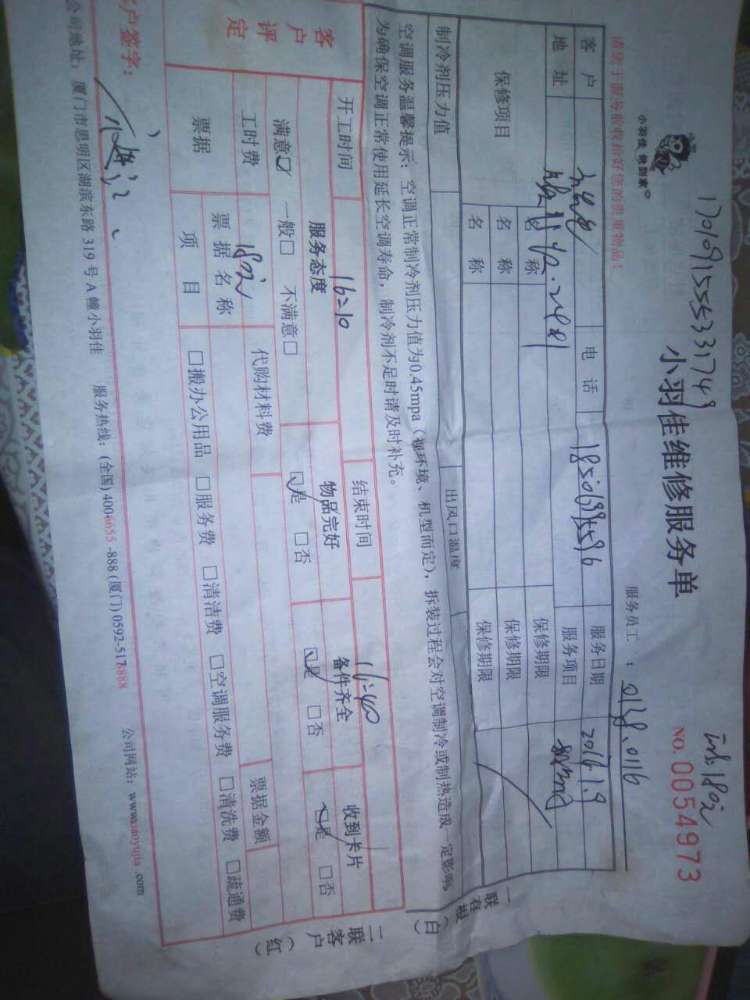 小羽佳 使到家
17010915553174
小羽佳维修服务单
NO. 0054973
请您于服务前收拾好您的贵重物品！
服务员工：0138.0116
客户
电话
服务日期 2016.1.9
地址
服务项目
保修项目
名称
保修期限
名称
保修期限
名称
保修期限
制冷剂压力值
出风口温度
空调服务温馨提示：空调正常制冷剂压力值为0.45mpa（视环境、机型而定），拆装过程会对空调制冷或制热造成一定影响
为确保空调正常使用延长空调寿命，制冷剂不足时请及时补充。
一联存根（白）
二联客户（红）
开工时间 16:10
结束时间 16:40
客户评定
服务态度
物品完好
备件齐全
收到卡片
满意☑ 一般□ 不满意□
☑是 □否
☑是 □否
☑是 □否
工时费 180元
代购材料费
票据
票据名称
票据金额
项目
□搬办公用品 □服务费 □清洁费 □空调服务费 □清洗费 □疏通费
客户签字：
公司地址：厦门市思明区湖滨东路319号A幢小羽佳
服务热线：(全国)4006655-888(厦门)0592-517888
公司网站：www.xiaoyujia.com